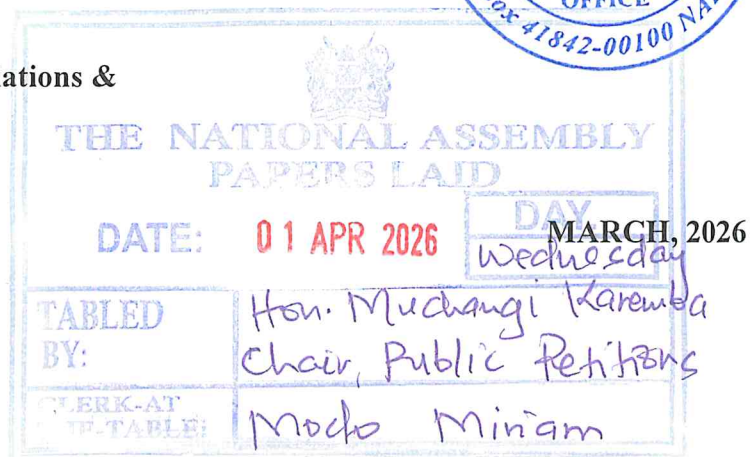 OFFICE
Box 41842-00100
ations &
THE NATIONAL ASSEMBLY
PAPERS LAID
DATE: 01 APR 2026
DAY
MARCH, 2026
Wednesday
TABLED BY:
Hon. Muchangi Karemba
Chair, Public Petitions
CLERK-AT
THE-TABLE:
Miriam